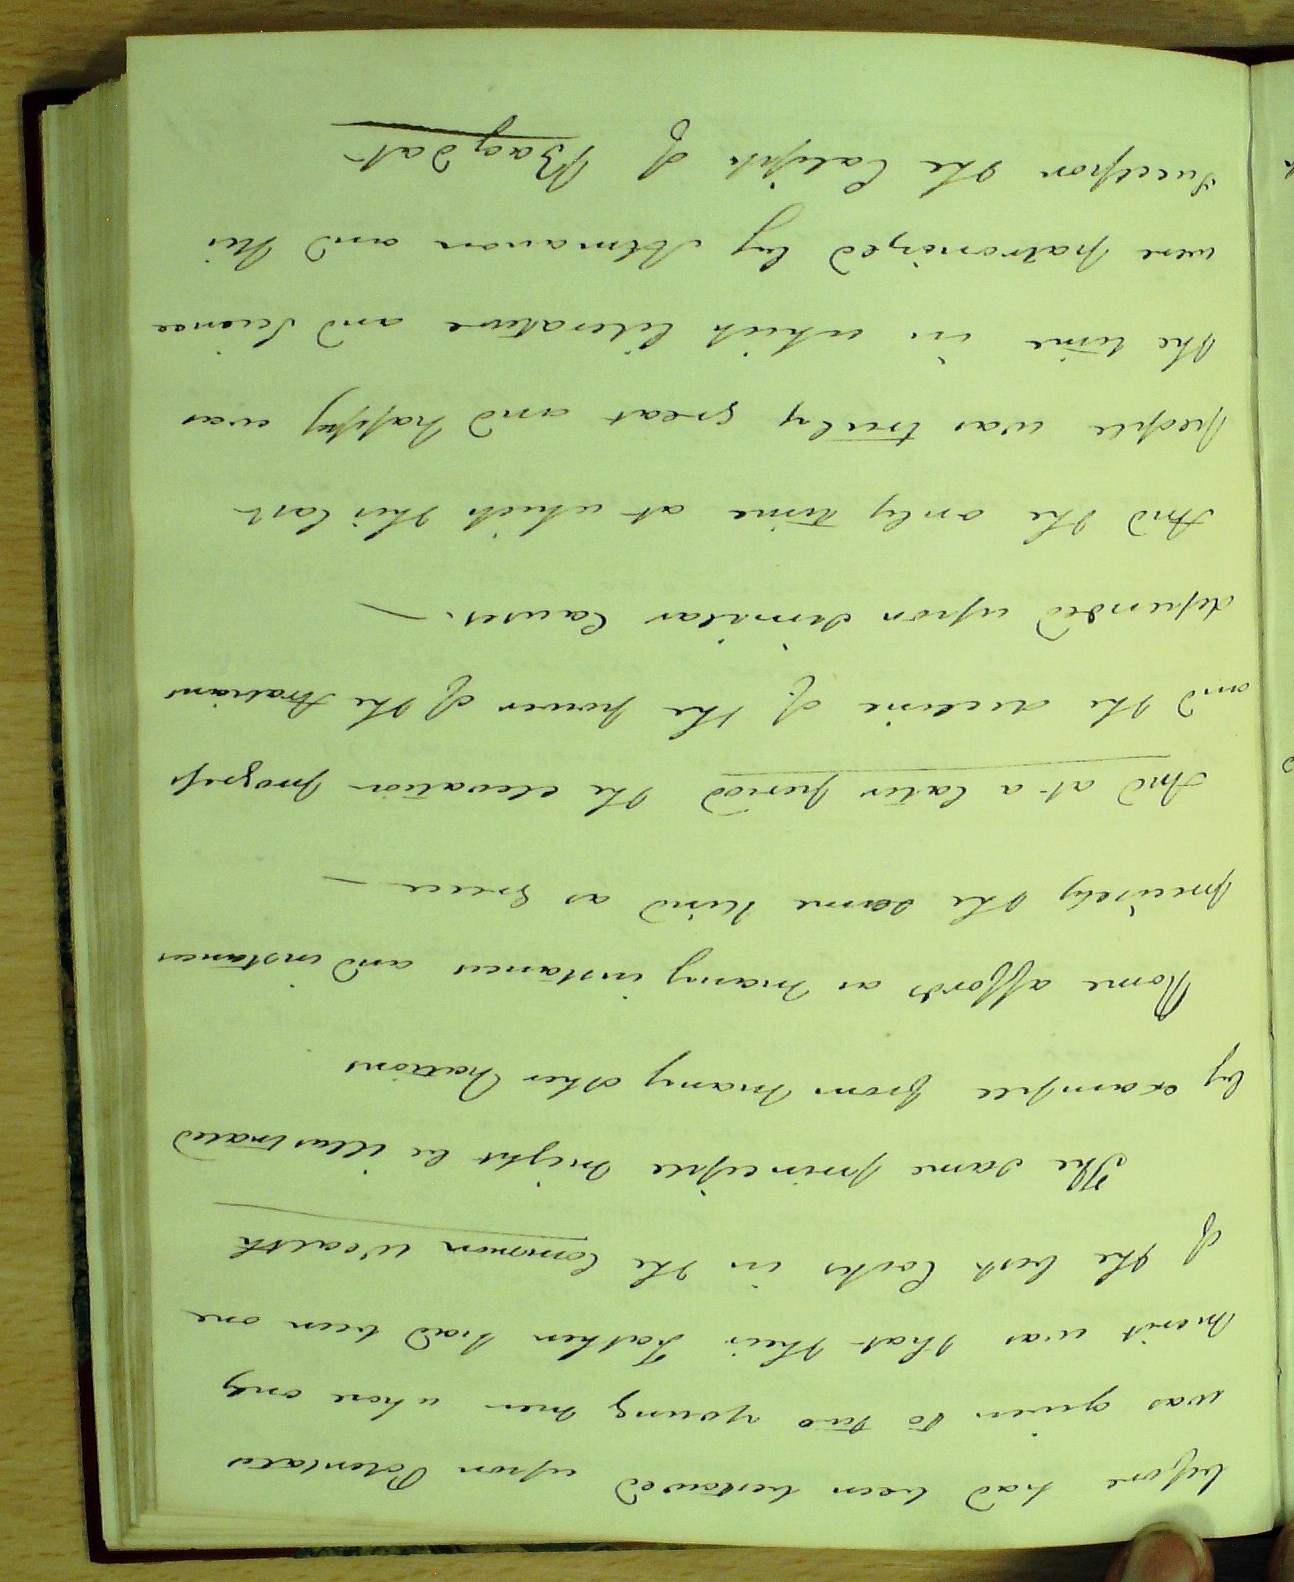 before had been bestowed upon Potentates
was given to two young men whose only
merit was that their Father had been one
of the best Cooks in the Common Wealth
The same principle might be illustrated
by example from many other Nations
Rome affords as many instances and instances
precisely the same kind as Greece —
And at a later period the elevation progress
and the decline of the power of the Arabians
depended upon similar Causes. —
And the only time at which this last
people was truly great and happy was
the time in which literature and Science
were patronized by Almanon and his
Succesor the Caliph of Bagdat